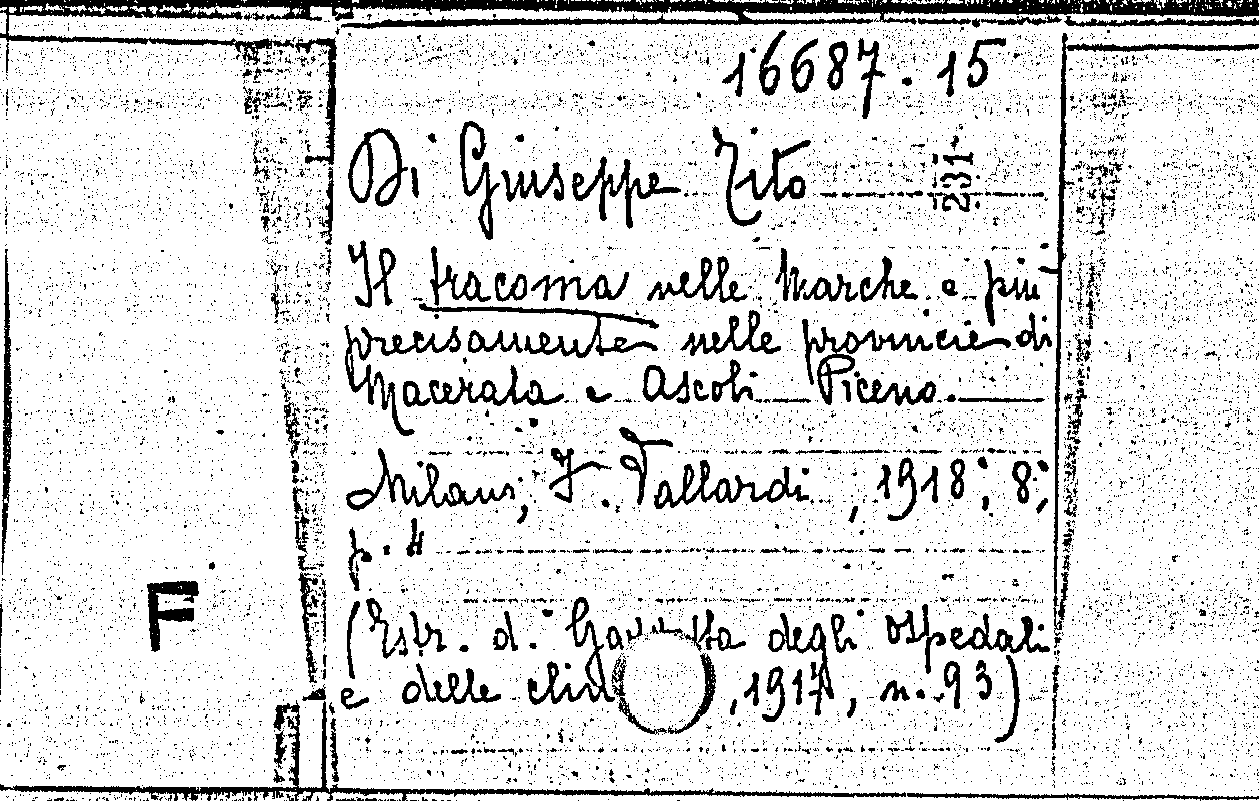 16687.15
Di Giuseppe Tito
231
Il tracoma nelle Marche e più
precisamente nelle provincie di
Macerata e Ascoli Piceno.
Milano, F. Vallardi, 1918; 8°;
p. 4
(Estr. d. degli ospedali
e delle , 1917, n. 93)
F